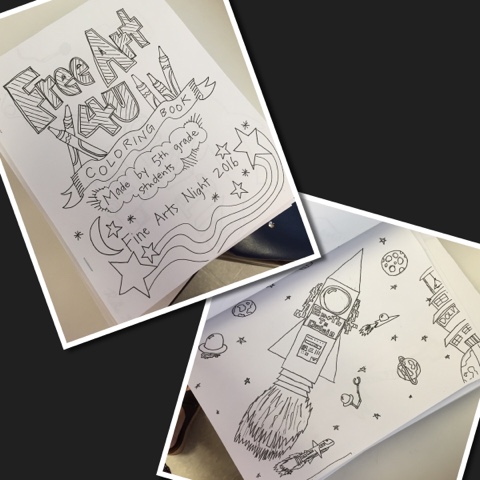 Free Art
4U
COLORING BOOK
Made by 5th grade
students
Fine Arts Night 2016